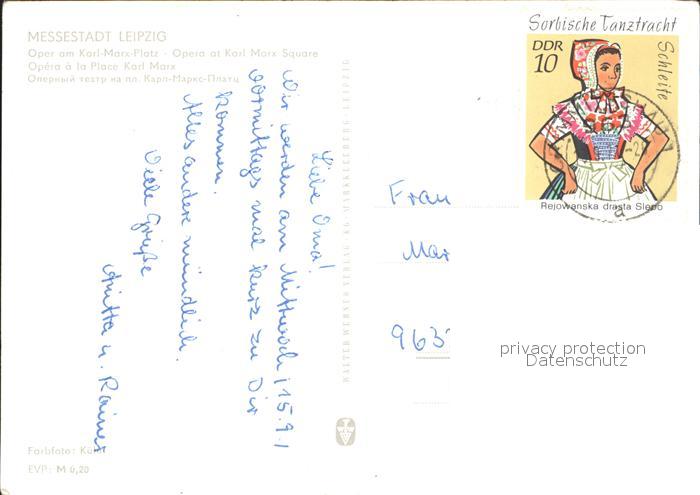 MESSESTADT LEIPZIG
Oper am Karl-Marx-Platz · Opera at Karl Marx Square
Opéra à la Place Karl Marx
Оперный театр на пл. Карл-Маркс-Платц
Liebe Oma!
Wir werden am Mittwoch, 15.9.,
vormittags mal kurz zu Dir
kommen.
Alles andere mündlich.
Viele Grüße
Jutta u. Rainer
Farbfoto:
EVP: M 0,20
WALTER WERNER VERLAG KG MARKKLEEBERG-LEIPZIG
Sorbische Tanztracht
Schleife
DDR
10
Rejowanska drasta Slepo
Frau
Mar
963
privacy protection
Datenschutz